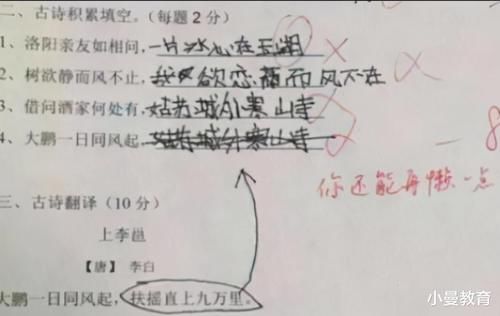 二、古诗积累填空。（每题2分）
1、洛阳亲友如相问，一片冰心在玉湖
2、树欲静而风不止，我欲恋而风不在
3、借问酒家何处有，姑苏城外寒山寺
4、大鹏一日同风起，姑苏城外寒山寺
- 8
你还能再懒一点
三、古诗翻译（10分）
上李邕
【唐】 李白
大鹏一日同风起，扶摇直上九万里。
小曼教育